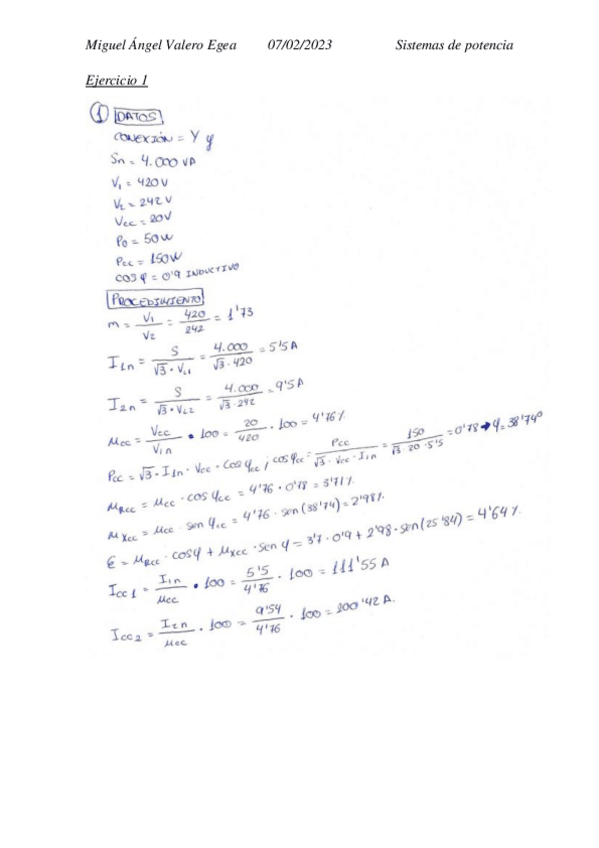 Miguel Ángel Valero Egea 07/02/2023 Sistemas de potencia
Ejercicio 1
① DATOS
CONEXIÓN = Y y
Sn = 4.000 VA
V₁ = 420 V
V₂ = 242 V
Vcc = 20V
P₀ = 50W
Pcc = 150W
COS φ = 0'9 INDUCTIVO
PROCEDIMIENTO
m = V₁/V₂ = 420/242 = 1'73
I₁n = S/(√3 · V₁₁) = 4.000/(√3 · 420) = 5'5 A
I₂n = S/(√3 · V₁₂) = 4.000/(√3 · 242) = 9'5 A
μcc = Vcc/V₁n · 100 = 20/420 · 100 = 4'76 %
Pcc = √3 · I₁n · Vcc · Cos φcc ; cos φcc = Pcc/(√3 · Vcc · I₁n) = 150/(√3 · 20 · 5'5) = 0'78 → φ = 38'74º
μRcc = μcc · cos φcc = 4'76 · 0'78 = 3'71 %
μXcc = μcc · sen φcc = 4'76 · sen (38'74) = 2'98 %
ε = μRcc · cos φ + μXcc · sen φ = 3'7 · 0'9 + 2'98 · sen (25'84) = 4'64 %.
Icc1 = I₁n/μcc · 100 = 5'5/4'76 · 100 = 111'55 A
Icc2 = I₂n/μcc · 100 = 9'54/4'76 · 100 = 200'42 A.